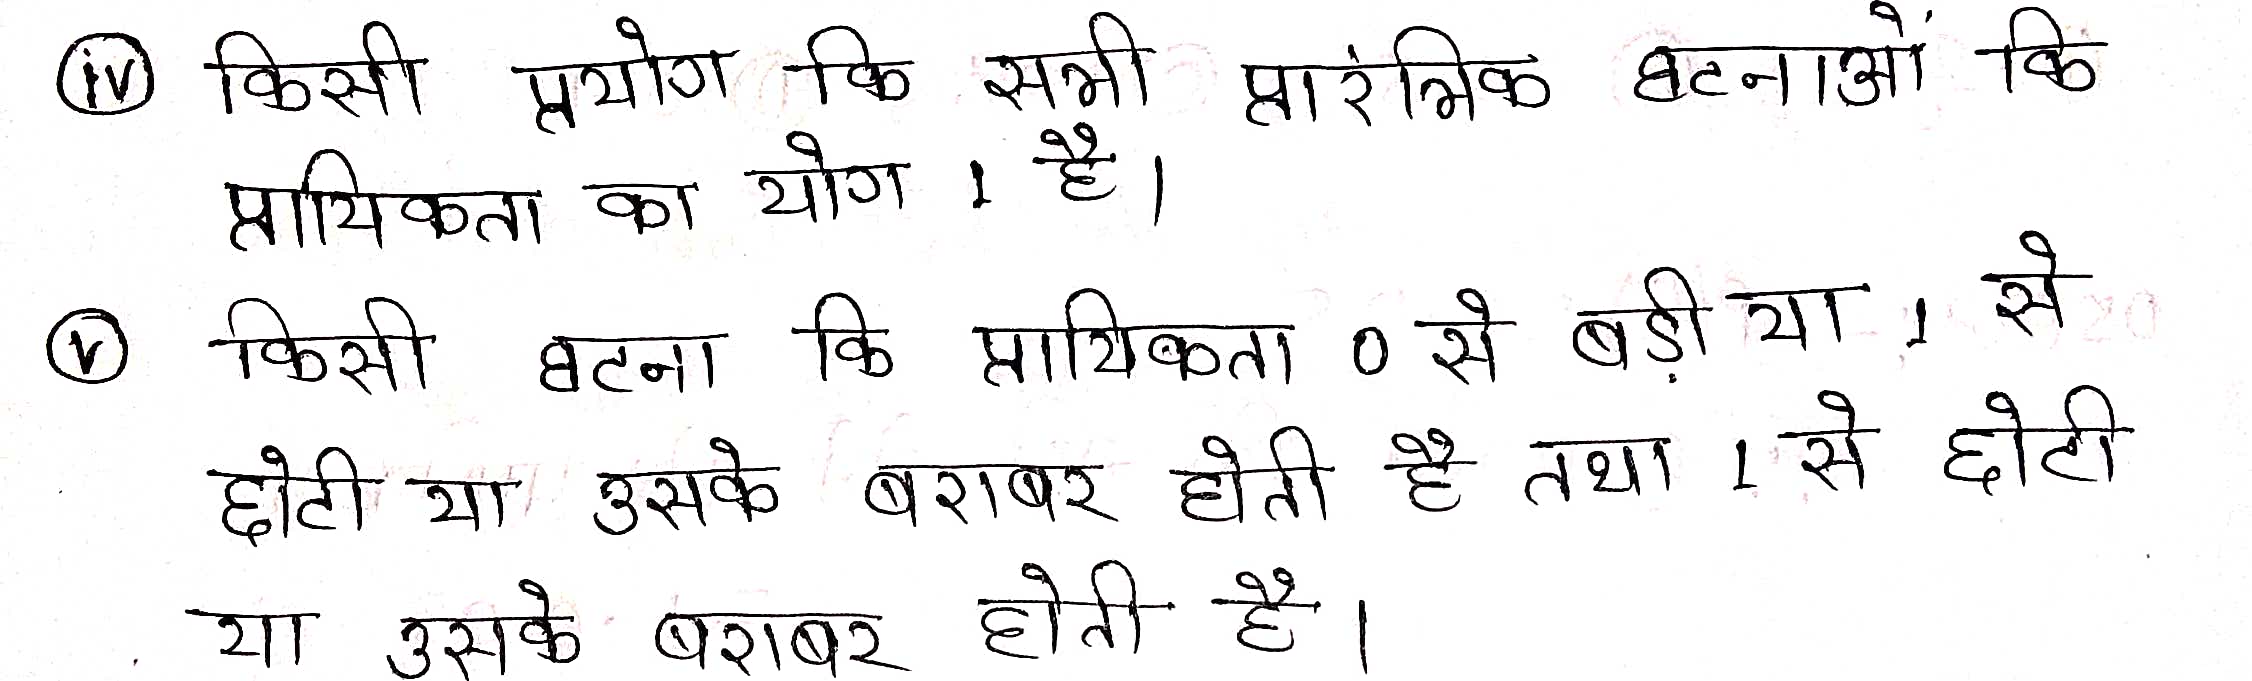 (iv) किसी प्रयोग कि सभी प्रारंभिक घटनाओं कि
प्रायिकता का योग 1 है।
(v) किसी घटना कि प्रायिकता 0 से बड़ी या 1 से
छोटी या उसके बराबर होती है तथा 1 से छोटी
या उसके बराबर होती है।